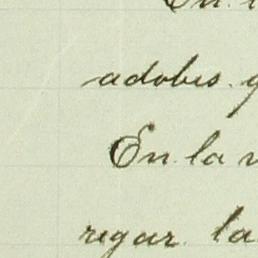 En
adobes.
En la
regar. la